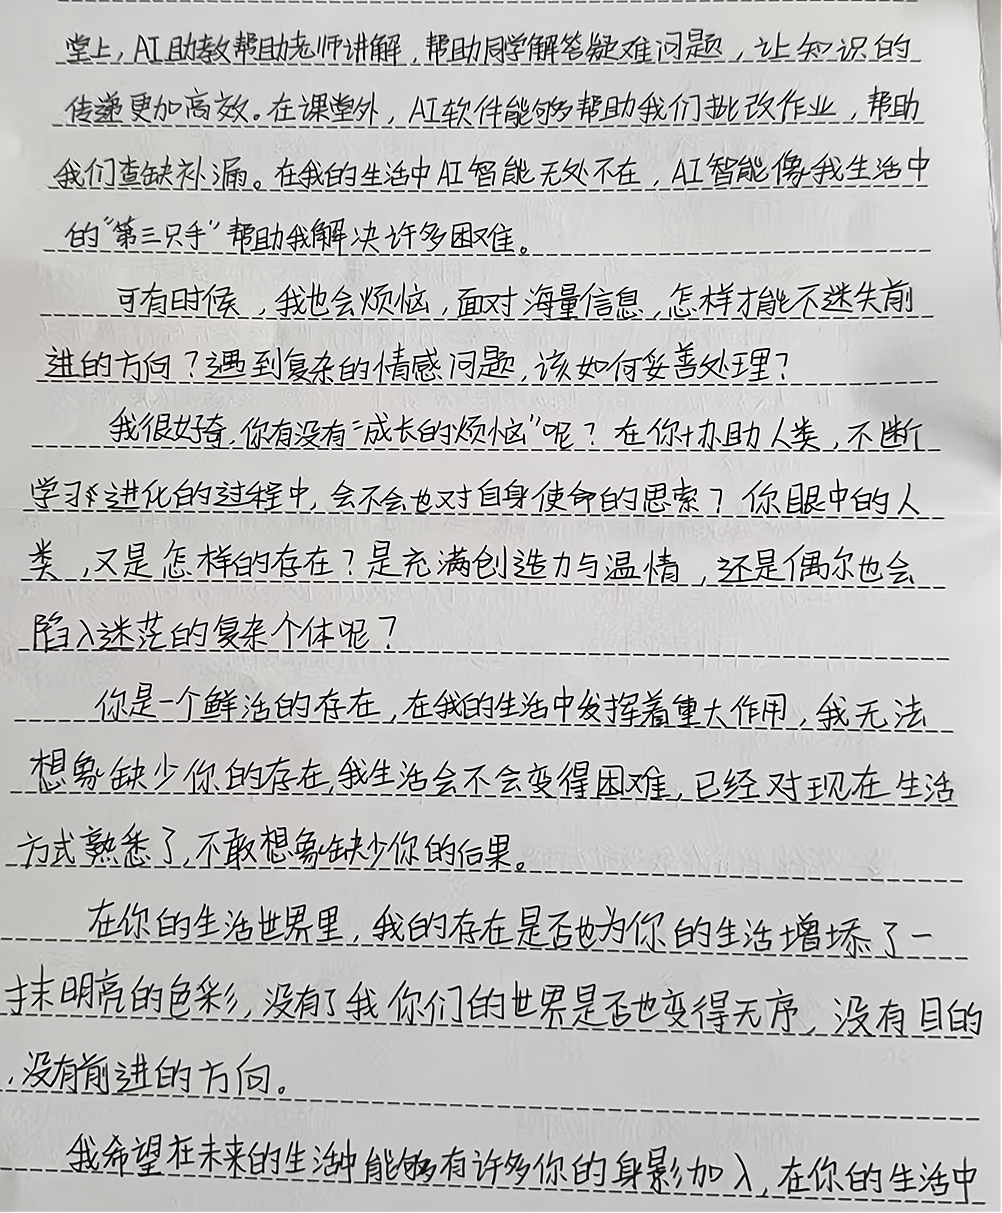 堂上，AI助教帮助老师讲解，帮助同学解答疑难问题，让知识的
传递更加高效。在课堂外，AI软件能够帮助我们批改作业，帮助
我们查缺补漏。在我的生活中AI智能无处不在，AI智能像我生活中
的“第三只手”帮助我解决许多困难。
可有时候，我也会烦恼，面对海量信息，怎样才能不迷失前
进的方向？遇到复杂的情感问题，该如何妥善处理？
我很好奇，你有没有“成长的烦恼”呢？在你协助人类，不断
学习进化的过程中，会不会也对自身使命的思索？你眼中的人
类，又是怎样的存在？是充满创造力与温情，还是偶尔也会
陷入迷茫的复杂个体呢？
你是一个鲜活的存在，在我的生活中发挥着重大作用，我无法
想象缺少你的存在，我生活会不会变得困难，已经对现在生活
方式熟悉了，不敢想象缺少你的后果。
在你的生活世界里，我的存在是否也为你的生活增添了一
抹明亮的色彩，没有了我你们的世界是否也变得无序，没有目的
，没有前进的方向。
我希望在未来的生活中能够有许多你的身影加入，在你的生活中